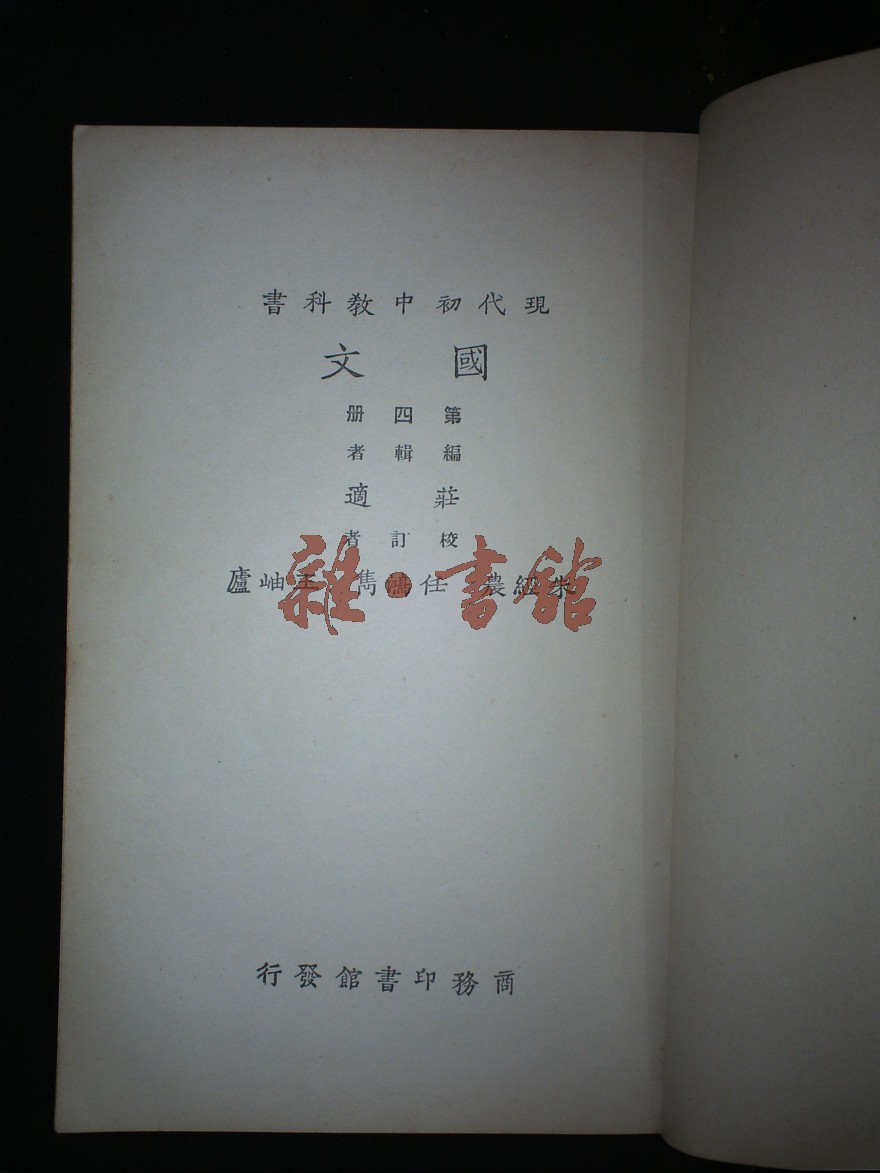 現代初中教科書
國文
第四册
編輯者
莊適
校訂者
朱經農 任鴻雋 王岫廬
雜·書館
商務印書館發行